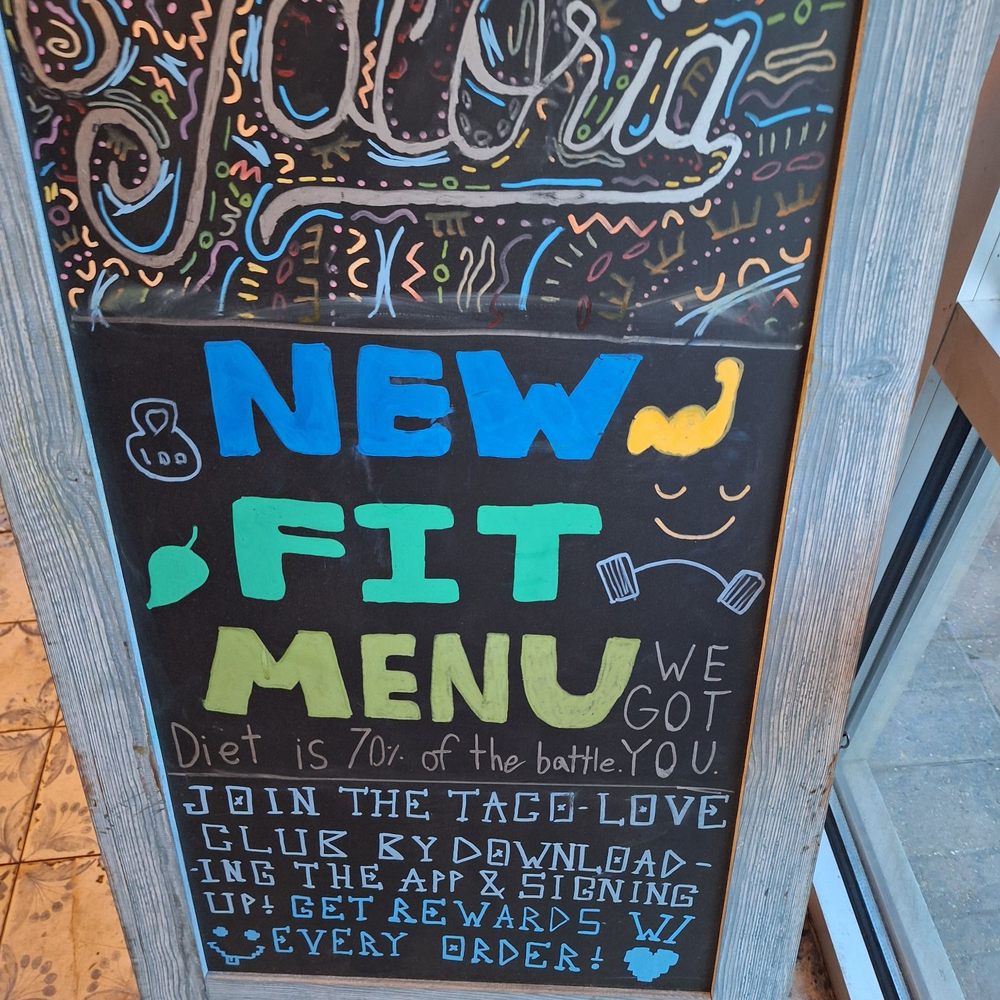 Tacoria
NEW
100
FIT
MENU
WE
GOT
YOU.
Diet is 70% of the battle.
JOIN THE TACO-LOVE
CLUB BY DOWNLOAD-
-ING THE APP & SIGNING
UP! GET REWARDS W/
EVERY ORDER!